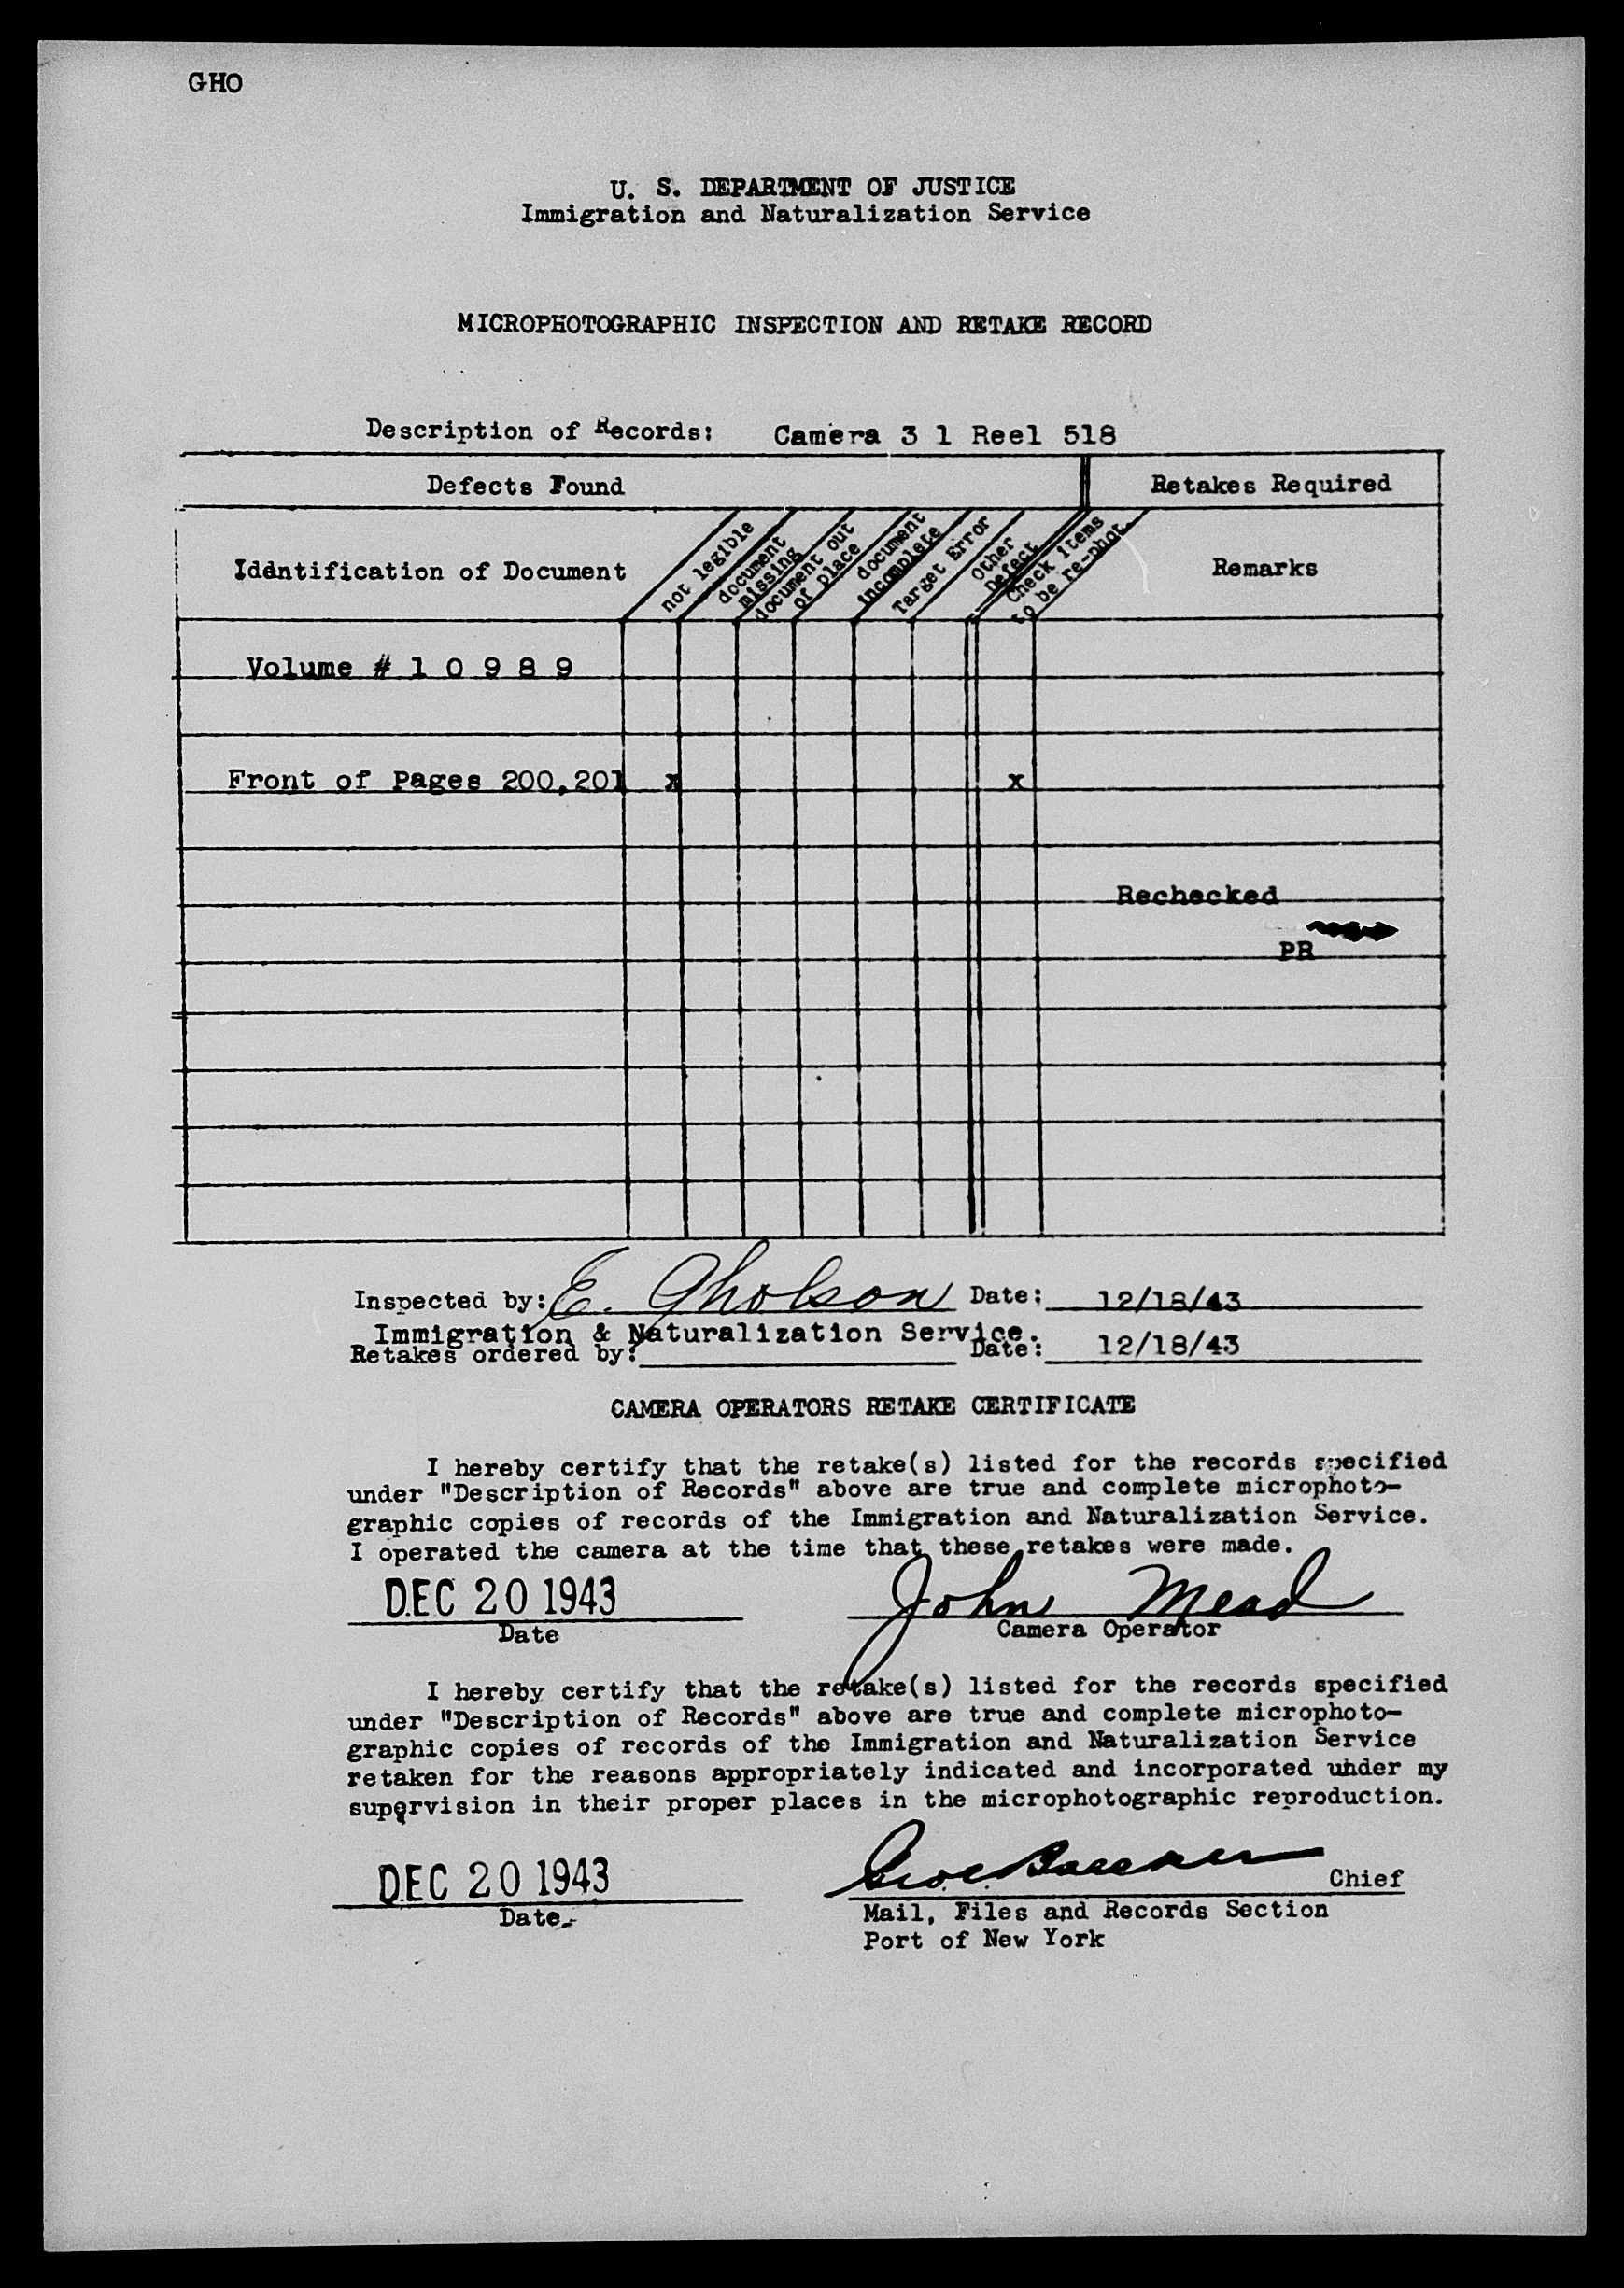 GHO
U. S. DEPARTMENT OF JUSTICE
Immigration and Naturalization Service
MICROPHOTOGRAPHIC INSPECTION AND RETAKE RECORD
Description of Records: Camera 3 1 Reel 518
Defects Found Retakes Required
Identification of Document
not legible
document missing
document out of place
document incomplete
Target Error
Other Defect
Check items to be re-phot.
Remarks
Volume # 1 0 9 8 9
Front of Pages 200,201 x x
Rechecked
PR
Inspected by: E. Gholson Date: 12/18/43
Immigration & Naturalization Service.
Retakes ordered by: Date: 12/18/43
CAMERA OPERATORS RETAKE CERTIFICATE
I hereby certify that the retake(s) listed for the records specified
under "Description of Records" above are true and complete microphoto-
graphic copies of records of the Immigration and Naturalization Service.
I operated the camera at the time that these retakes were made.
DEC 20 1943 John Mead
Date Camera Operator
I hereby certify that the retake(s) listed for the records specified
under "Description of Records" above are true and complete microphoto-
graphic copies of records of the Immigration and Naturalization Service
retaken for the reasons appropriately indicated and incorporated under my
supervision in their proper places in the microphotographic reproduction.
DEC 20 1943 Chief
Date Mail, Files and Records Section
Port of New York